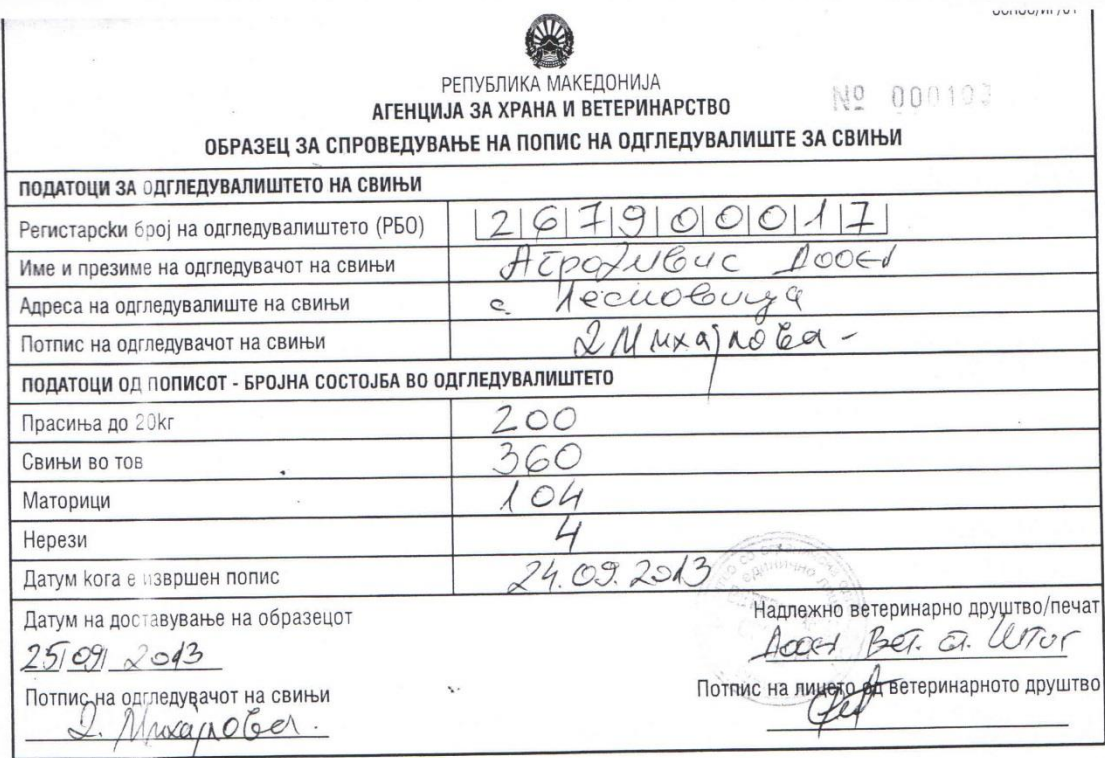 РЕПУБЛИКА МАКЕДОНИЈА
АГЕНЦИЈА ЗА ХРАНА И ВЕТЕРИНАРСТВО
№ 000103
ОБРАЗЕЦ ЗА СПРОВЕДУВАЊЕ НА ПОПИС НА ОДГЛЕДУВАЛИШТЕ ЗА СВИЊИ
ПОДАТОЦИ ЗА ОДГЛЕДУВАЛИШТЕТО НА СВИЊИ
Регистарски број на одгледувалиштето (РБО) 267900017
Име и презиме на одгледувачот на свињи Агрозивис дооел
Адреса на одгледувалиште на свињи с.
Потпис на одгледувачот на свињи Михајлова -
ПОДАТОЦИ ОД ПОПИСОТ - БРОЈНА СОСТОЈБА ВО ОДГЛЕДУВАЛИШТЕТО
Прасиња до 20kг 200
Свињи во тов 360
Маторици 104
Нерези 4
Датум кога е извршен попис 24.09.2013
Датум на доставување на образецот
25/09/2013
Надлежно ветеринарно друштво/печат
Дооел Вет. ст. Штип
Потпис на одгледувачот на свињи
Михајлова.
Потпис на лицето од ветеринарното друштво